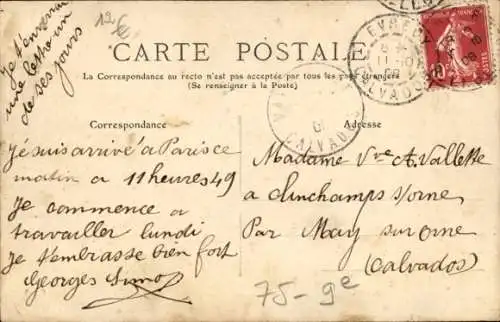 Je t'enverrai
une lettre un
de ses jours
12€
CARTE POSTALE
La Correspondance au recto n'est pas acceptée par tous les pays étrangers
(Se renseigner à la Poste)
EVRECY
CALVADOS
CALVADOS
Correspondance
Adresse
Je suis arrivé à Paris ce
matin a 11 heures 49
Je commence a
travailler lundi
Je t'embrasse bien fort
Georges Simo
Madame Vve A. Vallette
a Clinchamps s/orne
Par May sur orne
(Calvados)
75-9e